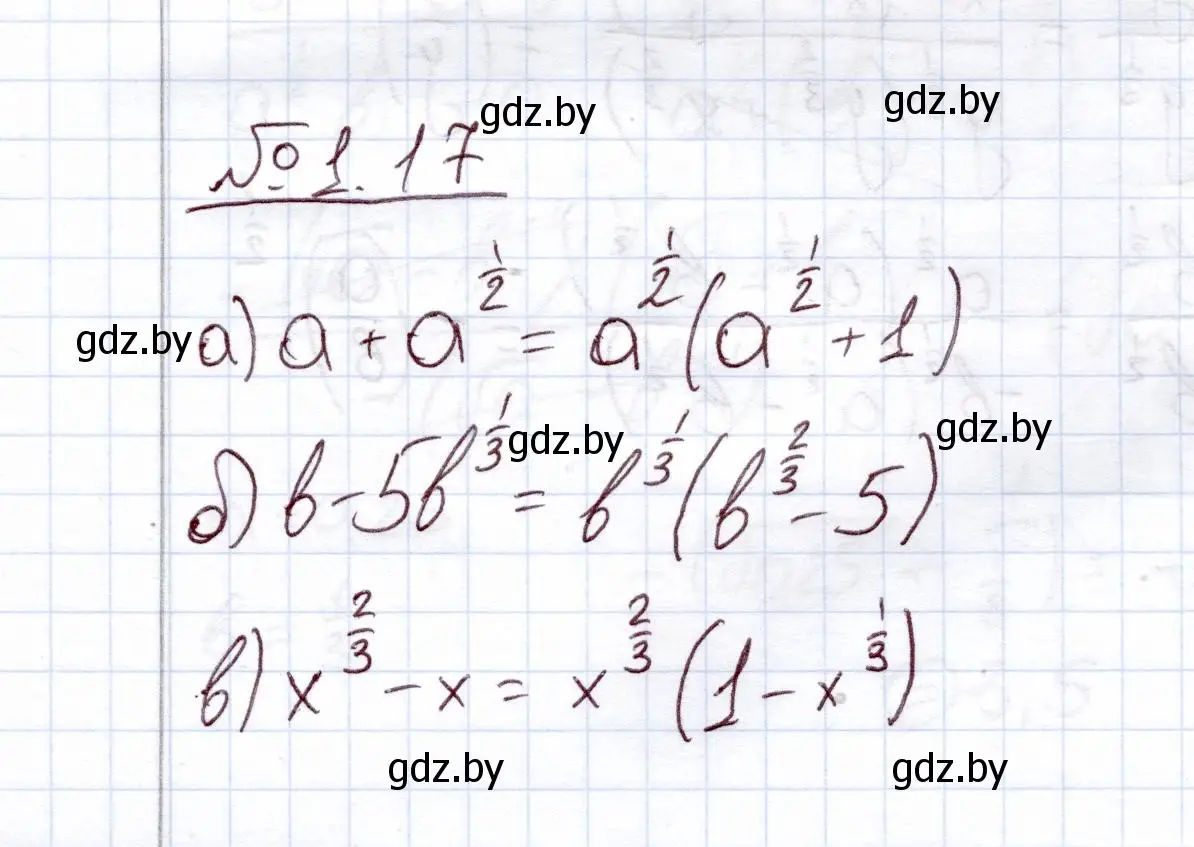 gdz.by gdz.by
№ 1.17
gdz.by а) a + a^(1/2) = a^(1/2) (a^(1/2) + 1)
gdz.by gdz.by
б) b - 5b^(1/3) = b^(1/3) (b^(2/3) - 5)
в) x^(2/3) - x = x^(2/3) (1 - x^(1/3))
gdz.by gdz.by